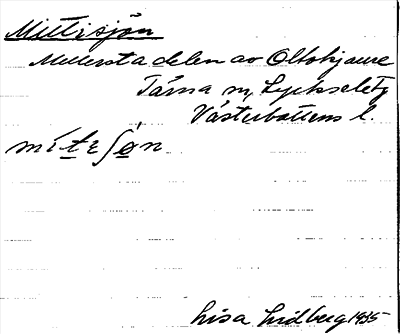 Mittisjön
Mellersta delen av Oltokjaure
Tärna sn, Lycksele tg
Västerbottens l.
mítεʃø̀n
Lisa Lidberg 1935